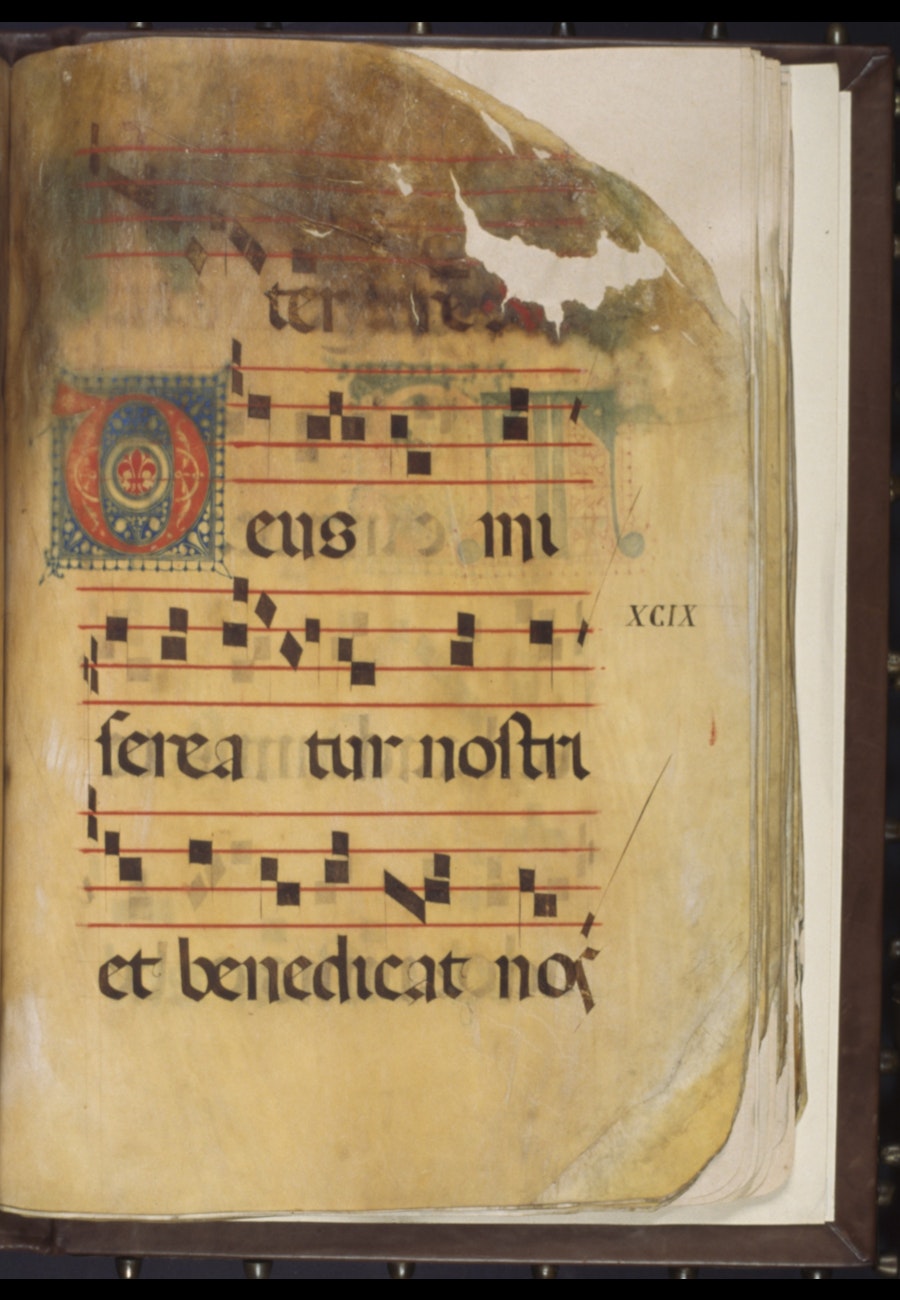 ter
Deus mi
XCIX
serea tur nostri
et benedicat nos